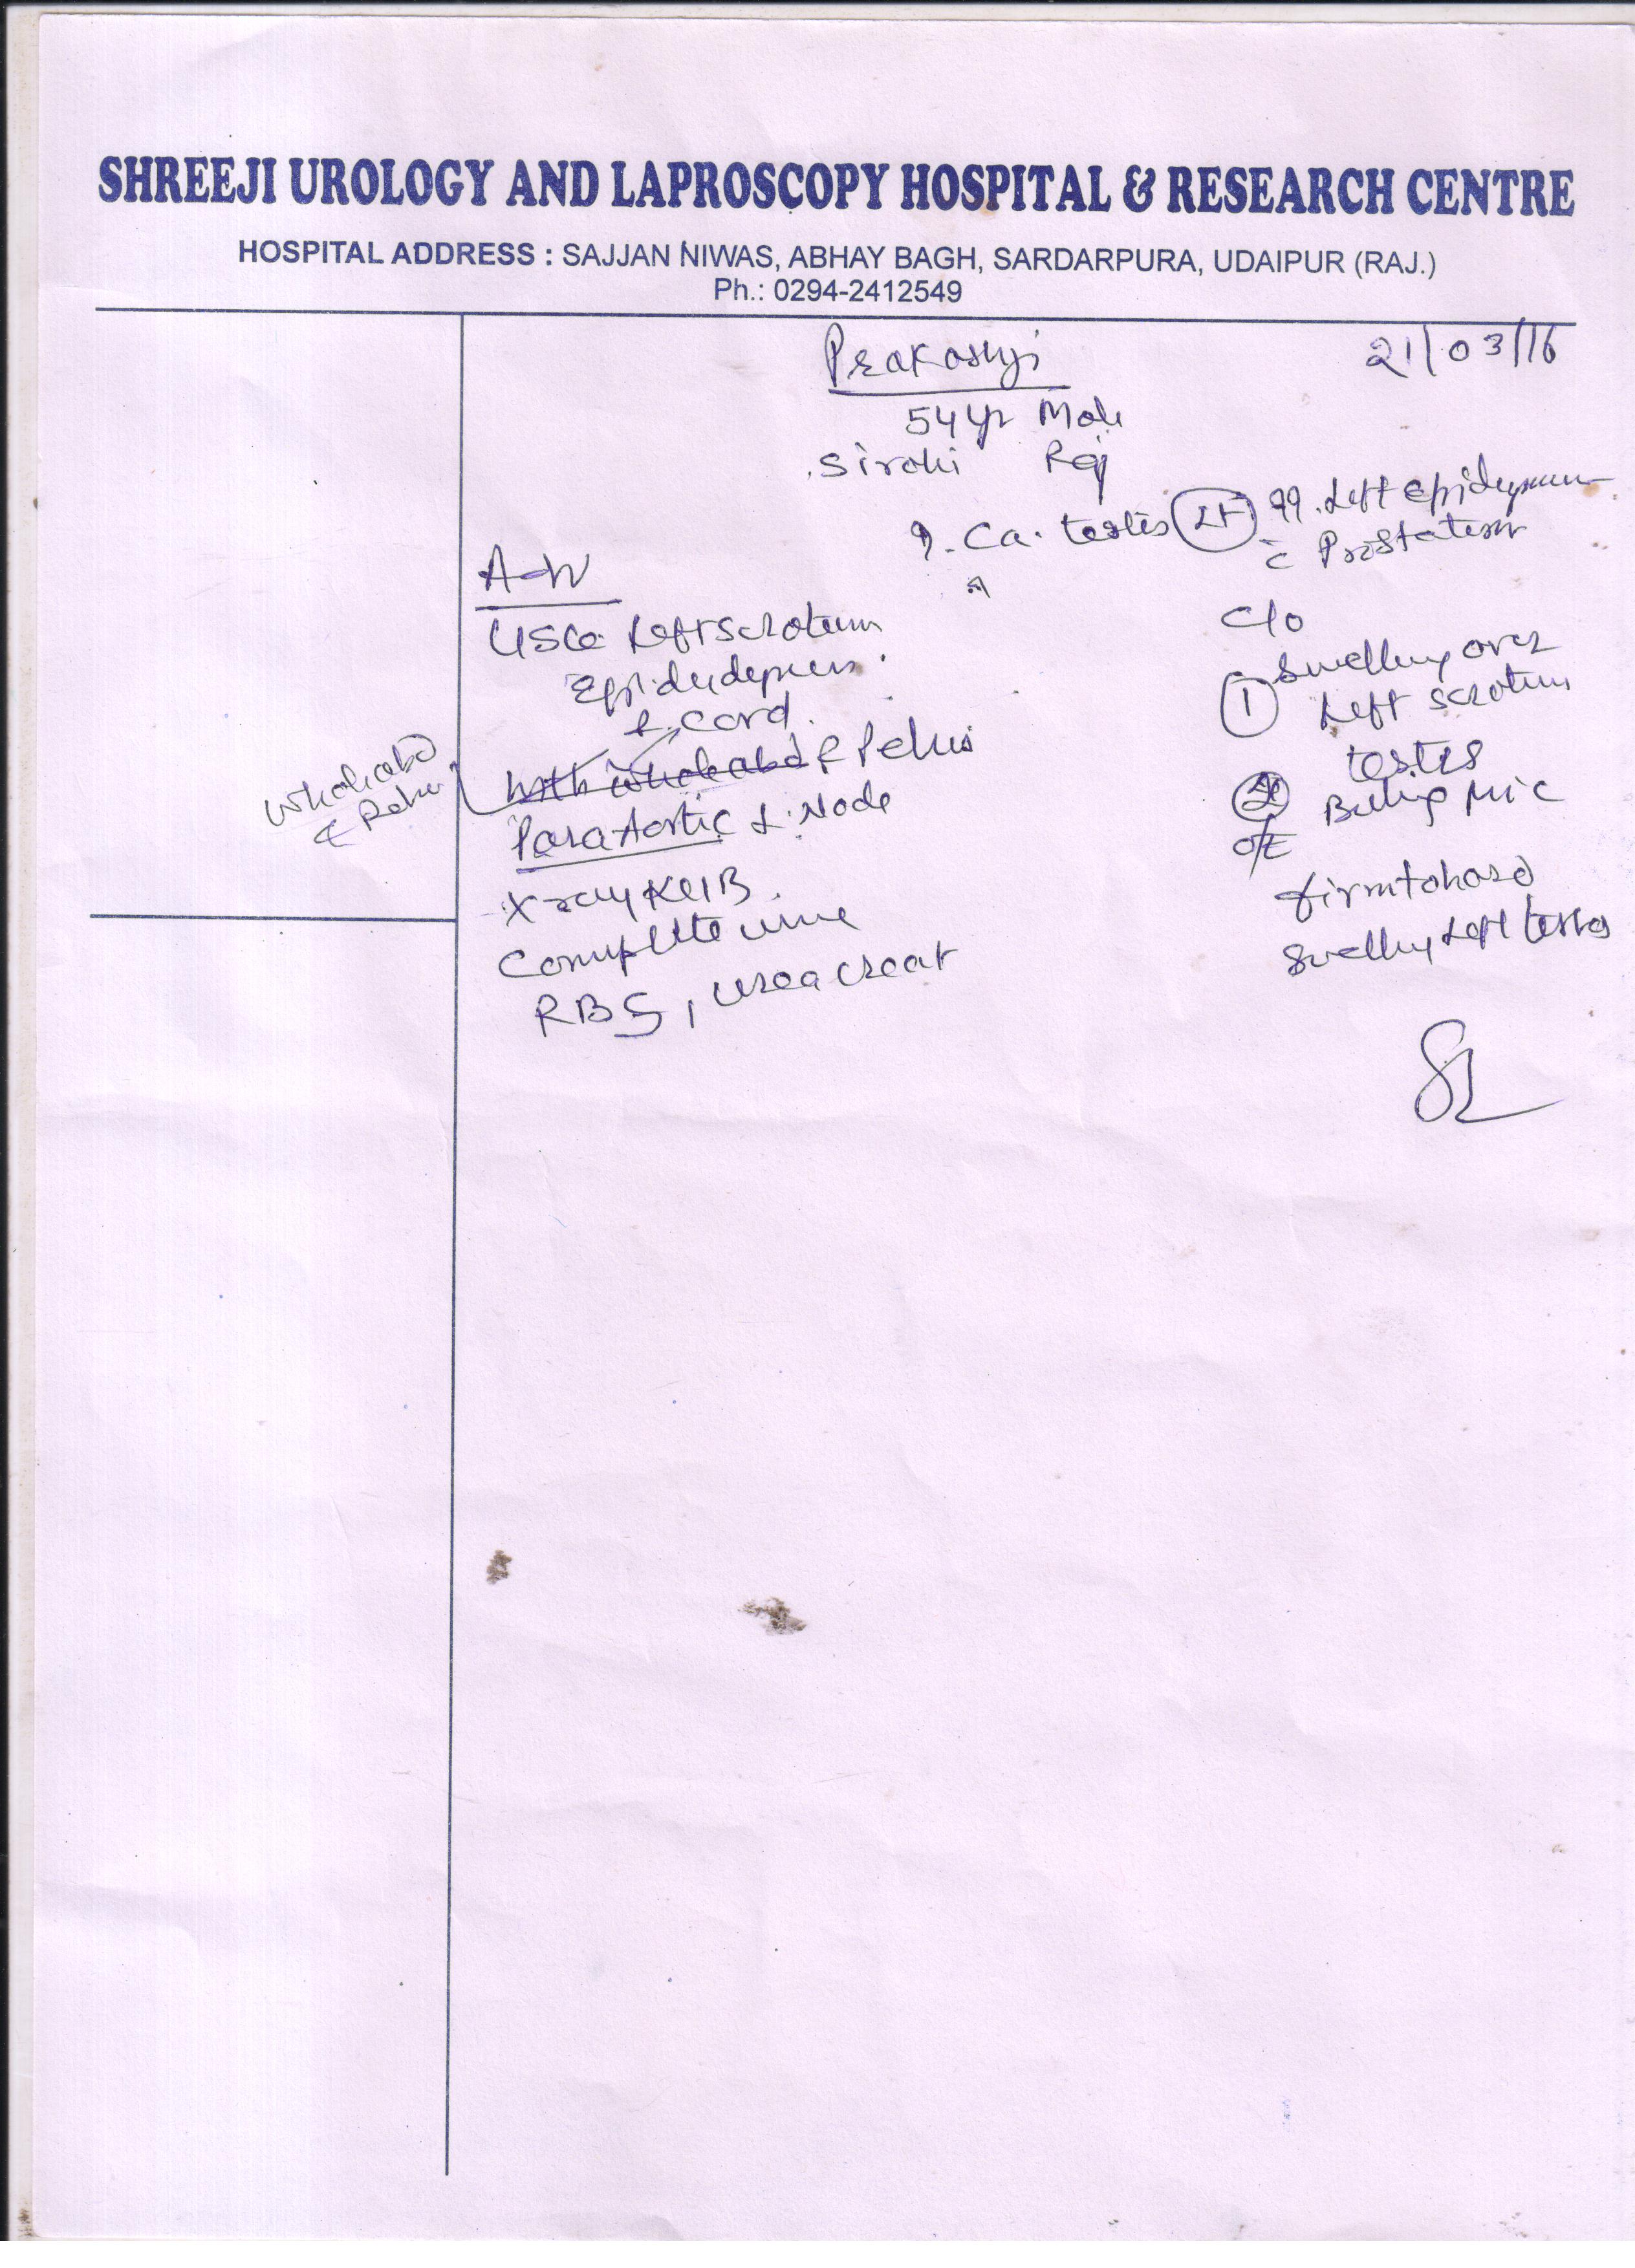 SHREEJI UROLOGY AND LAPROSCOPY HOSPITAL & RESEARCH CENTRE
HOSPITAL ADDRESS : SAJJAN NIWAS, ABHAY BAGH, SARDARPURA, UDAIPUR (RAJ.)
Ph.: 0294-2412549
Prakashji
21/03/16
54yr Male
Sirohi Raj
?. Ca. testis Lt ??. Left epidydmis
c̄ Prostatism
A-W
USG Left scrotum
& cord.
with whole abd & Pelvis
Whole abd
& Pelvis
Para Aortic L. Node
X ray KUB
Complete urine
RBS, urea creat
C/o
① Swelling over
Left scrotum
testis
② Mic
O/E
firm to hard
Swelling Left testes